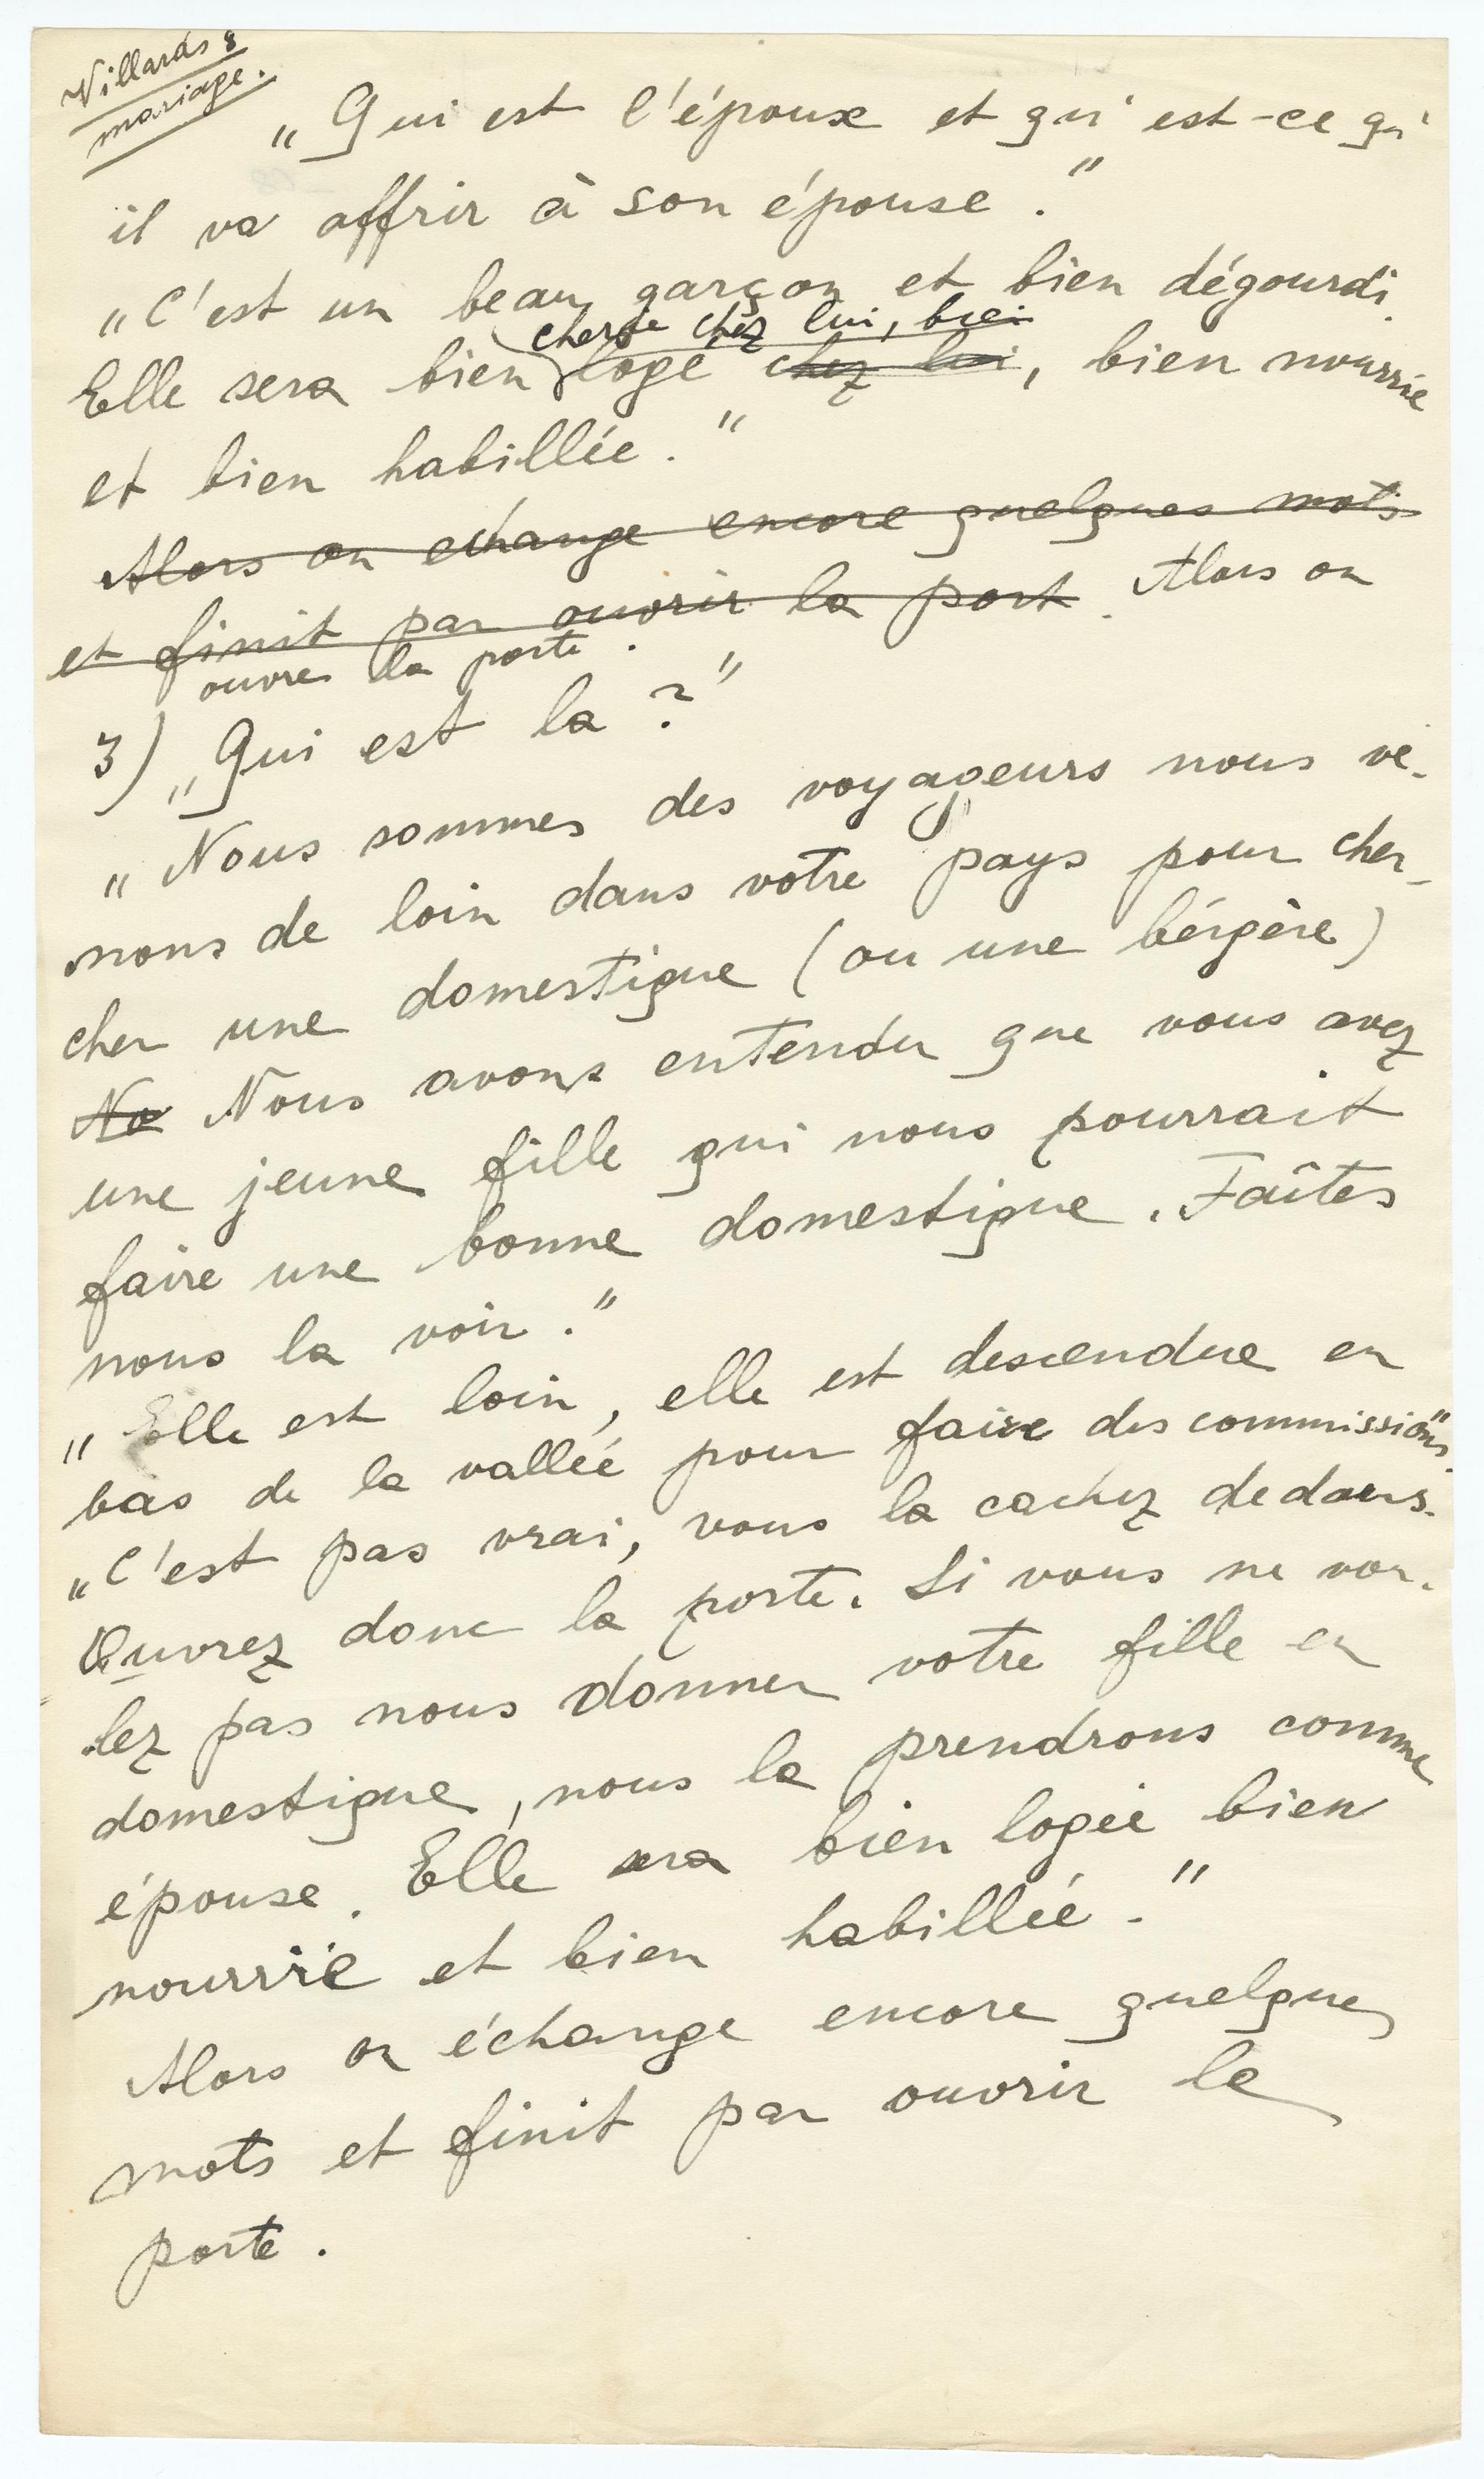 Villards 8
mariage.
„Qui est l'époux et qu'est-ce qu'
il va offrir à son épouse."
„C'est un beau garçon et bien dégourdi.
chez lui, bien
Elle sera bien logé chez lui, bien nourrie
et bien habillée."
Alors on echange encore quelques mots
et finit par ouvrir la port. Alors on
ouvre la porte.
3) „Qui est la?"
„Nous sommes des voyageurs nous ve-
nons de loin dans votre pays pour cher-
cher une domestique (ou une bérgère)
No Nous avons entendu que vous avez
une jeune fille qui nous pourrait
faire une bonne domestique. Faîtes
nous la voir."
„Elle est loin, elle est descendue en
bas de la vallée pour faire des commissions."
„C'est pas vrai, vous la cachez dedans.
Ouvrez donc la porte. Si vous ne vou-
lez pas nous donner votre fille en
domestique, nous la prendrons comme
épouse. Elle sera bien logée bien
nourrie et bien habillée."
Alors on échange encore quelques
mots et finit par ouvrir la
porte.